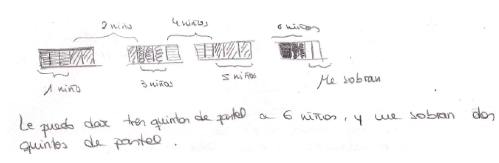 2 niños
4 niños
6 niños
1 niño
3 niños
5 niños
Me sobran
Le puedo dar tres quintos de pastel a 6 niños, y me sobran dos
quintos de pastel.